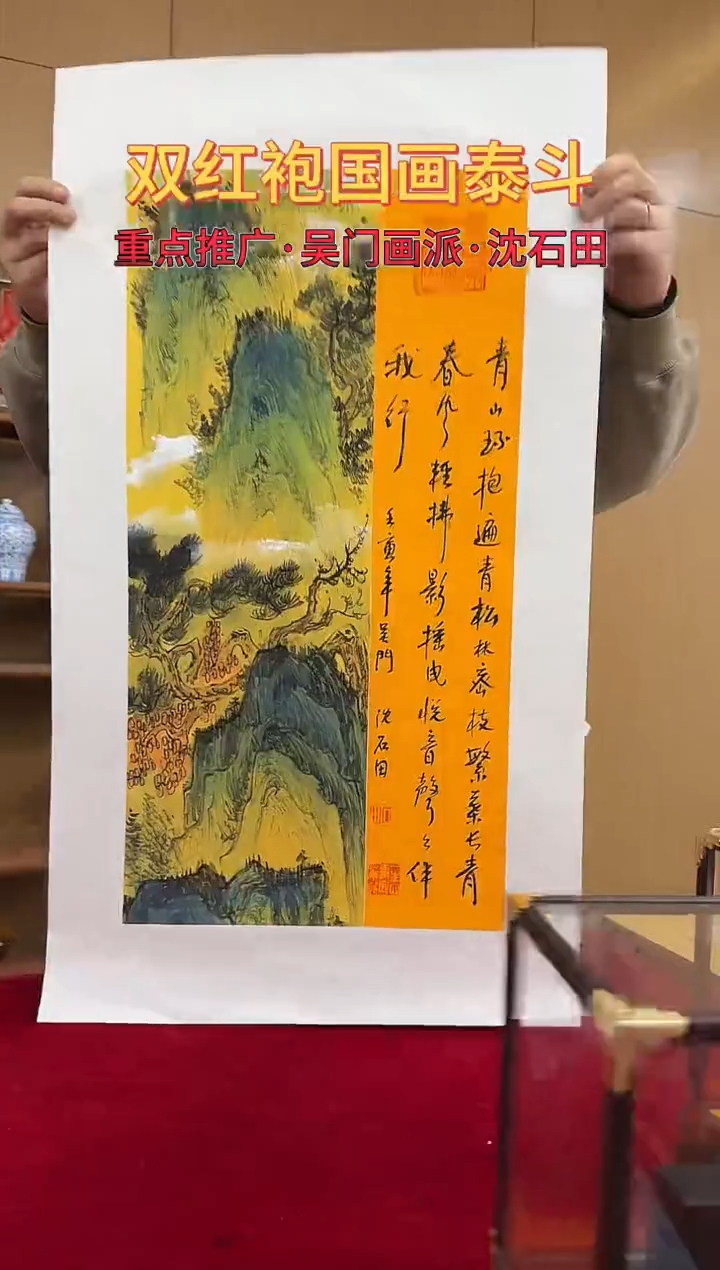 双红袍国画泰斗
重点推广·吴门画派·沈石田
青山环抱遍青松林密枝繁葉长青
春风轻拂影摇曳悦音聲聲伴
我行
壬寅年吴門 沈石田